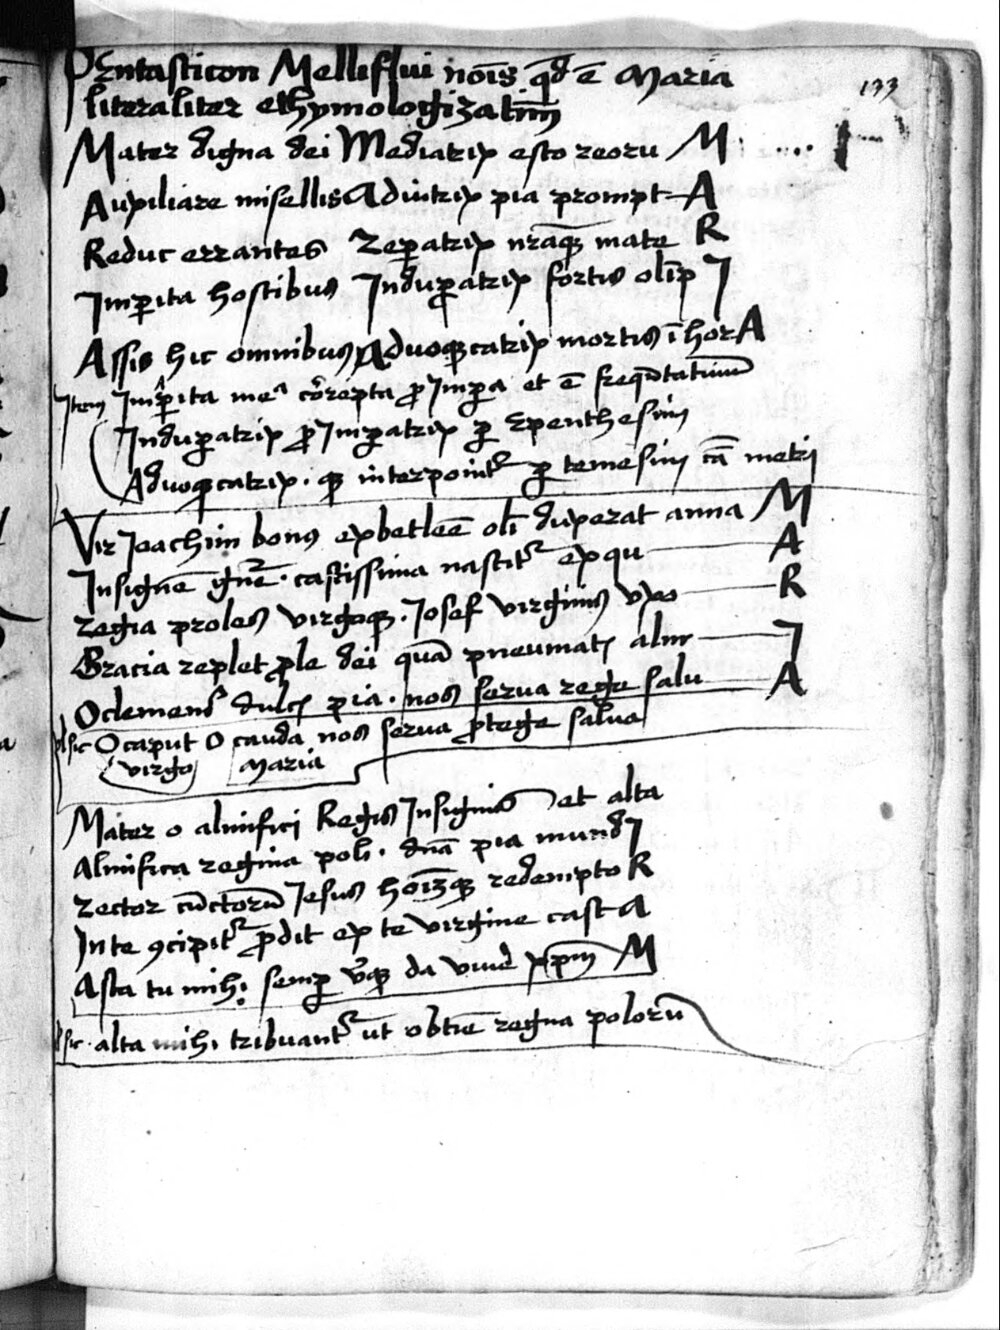 133
Pentasticon Melliflui nōis qd̄ ē Maria
literaliter ethymologizatiūm
Mater digna dei Mediatrix esto reoru M
Auxiliare misellis Adiutrix pia prompt A
Reduc errantes reꝑatrix nr̄aqꝫ mate R
Imꝑita hostibus Induꝑatrix fortis olīp I
Assis hic omnibus Aduoqꝫcatrix mortis ī horA
Item Imꝑita mea cōrepta ꝓ Imꝑa et ē freqn̄tatiuum
Induꝑatrix ꝓ Imꝑatrix ꝑ Epenthesim
Aduoqꝫcatrix. qꝫ interponitᷣ ꝑ temesim cā metri
Vir Joachim bonꝰ exbetleē oli duxerat anna M
Insignē gn̄ē. castissima nascitᷣ ex qu A
regia proles virgoqꝫ. Josef virginis vxo R
Gracia replet ꝓle dei quā pneumatꝭ alm I
O clemens dulcꝭ pia. nos serua rege salu A
vl sic O caput O cauda nos serua ꝓtege salua
virgo Maria
Mater o almifici Regis Insignis et alta
Almifica regina poli. dn̄a pia mundI
rector cūctorū Jesus hoīūqꝫ redemptoR
In te ꝯcipitᷣ ꝓdit ex te virgine castA
Asta tu mihi semꝑ vbqꝫ da viuē xp̄m M
vl sic. alta mihi tribuantᷣ ut obtiē regna polorū